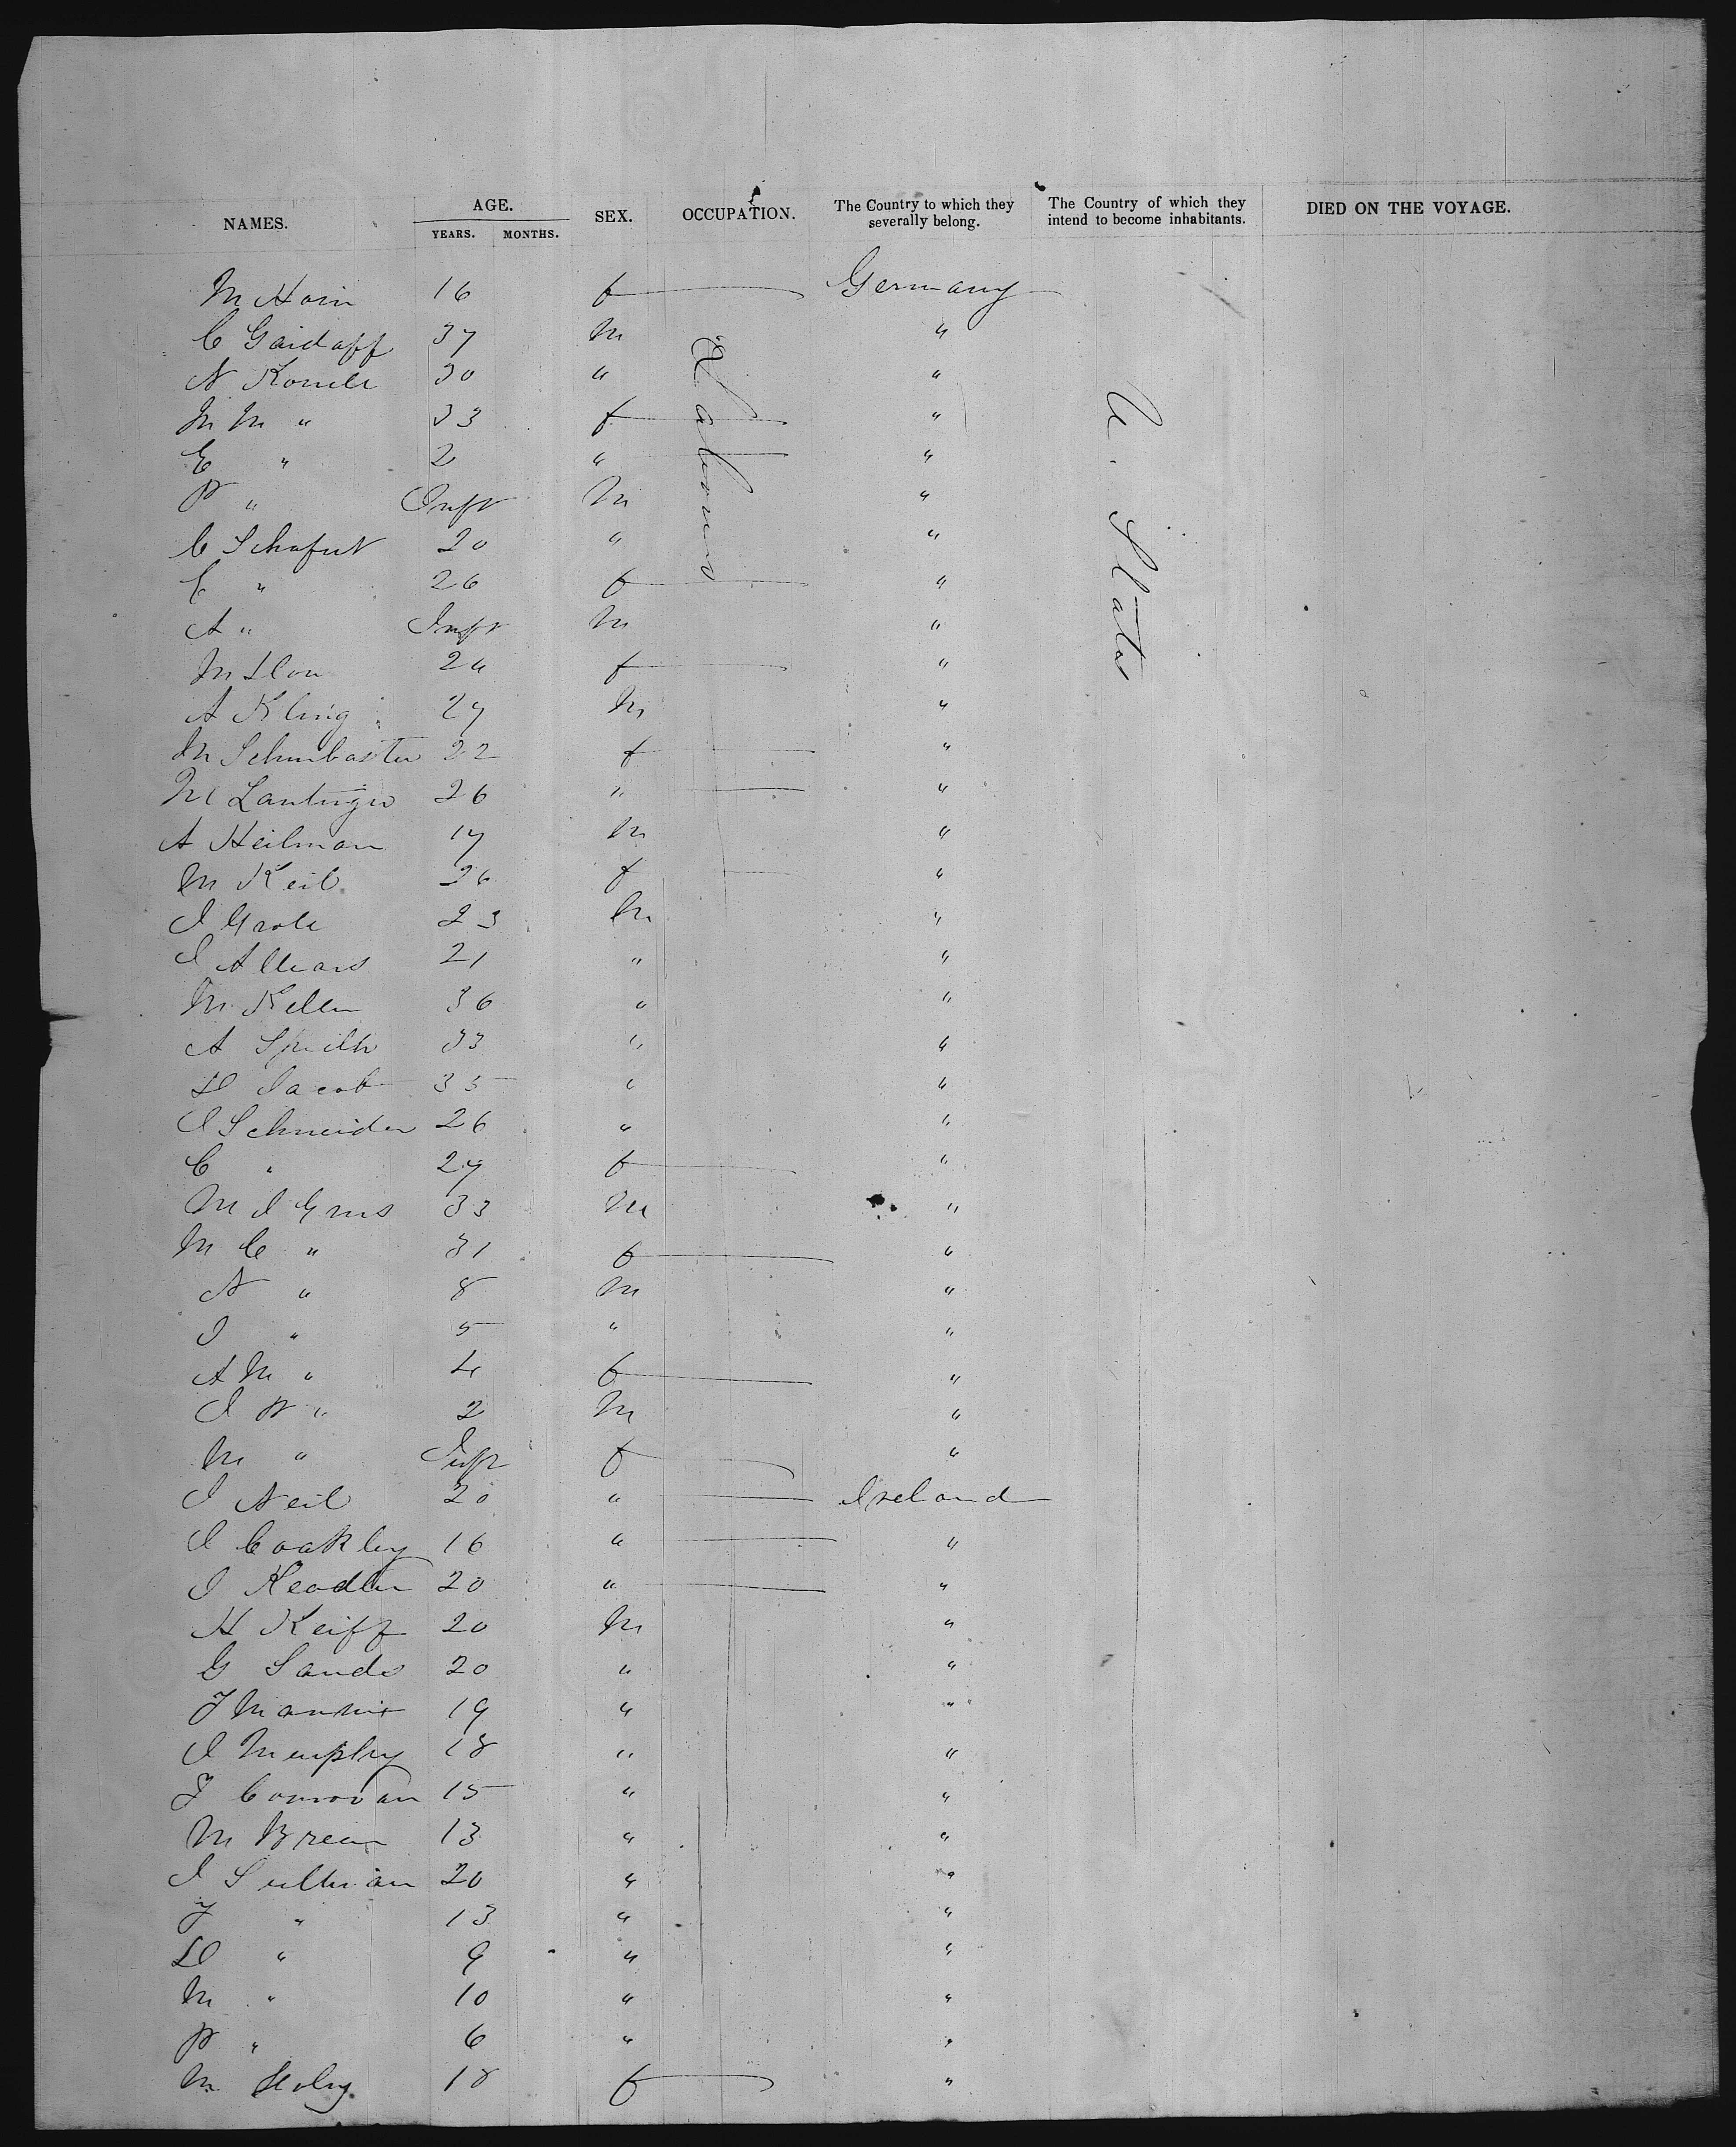 NAMES. AGE. YEARS. MONTHS. SEX. OCCUPATION. The Country to which they severally belong. The Country of which they intend to become inhabitants. DIED ON THE VOYAGE.
M Horn 16 f Germany
C Gaidaff 37 M "
N 30 " "
M M " 33 f "
E " 2 " "
P " Inft M "
C Schafut 20 " "
E " 26 f "
A " Inft M "
M 24 f "
A Kling 27 M "
M 22 f "
M Lantigu 26 " "
A Heilman 17 M "
M Keil 26 f "
J Grote 23 M "
J 21 " "
M Keller 36 " "
A 33 " "
D Jacob 35 " "
J Schneider 26 " "
C " 29 f "
M J 33 M "
M C " 31 f "
N " 8 M "
J " 5 " "
A M " 4 f "
J P " 2 M "
M " Inft f "
J Neil 20 " Ireland
J Coakley 16 " "
J 20 " "
H Keiff 20 M "
G Sands 20 " "
J Mannix 19 " "
J Murphy 18 " "
J Connovan 15 " "
M Breen 13 " "
J Sullivan 20 " "
J " 13 " "
D " 9 " "
M " 10 " "
P " 6 " "
M 18 f "
Labourers
U. States